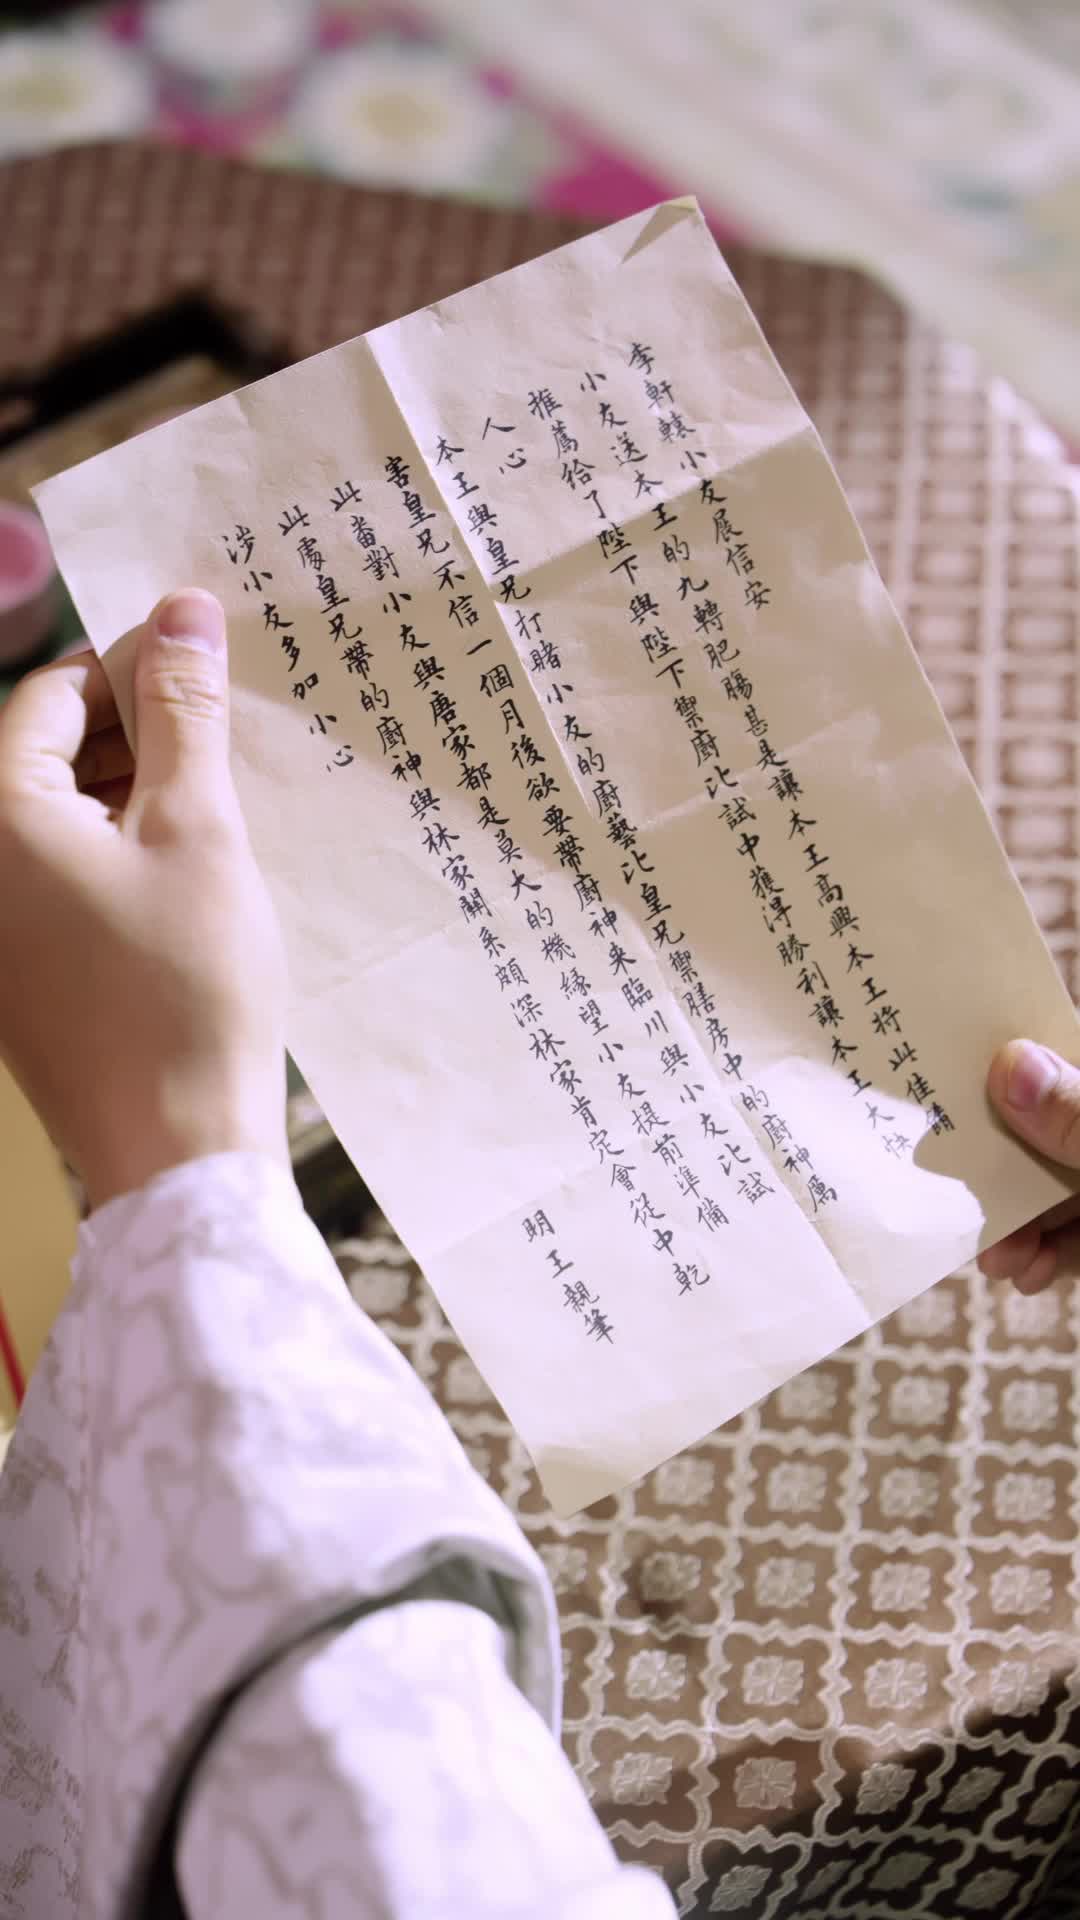 李軒轅小友展信安
小友送本王的九轉肥腸甚是讓本王高興本王将此佳餚
推薦給了陛下與陛下禦廚比試中獲得勝利讓本王大快
人心
本王與皇兄打賭小友的廚藝比皇兄禦膳房中的廚神厲
害皇兄不信一個月後欲要帶廚神来臨川與小友比試
此番對小友與唐家都是莫大的機緣望小友提前準備
此處皇兄帶的廚神與林家關系頗深林家肯定會從中乾
涉小友多加小心
明王親筆